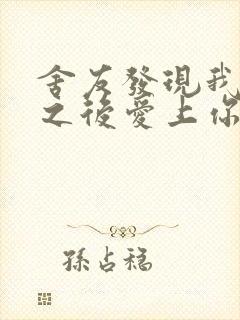 舍友發現我
之後愛上你
孫占稳